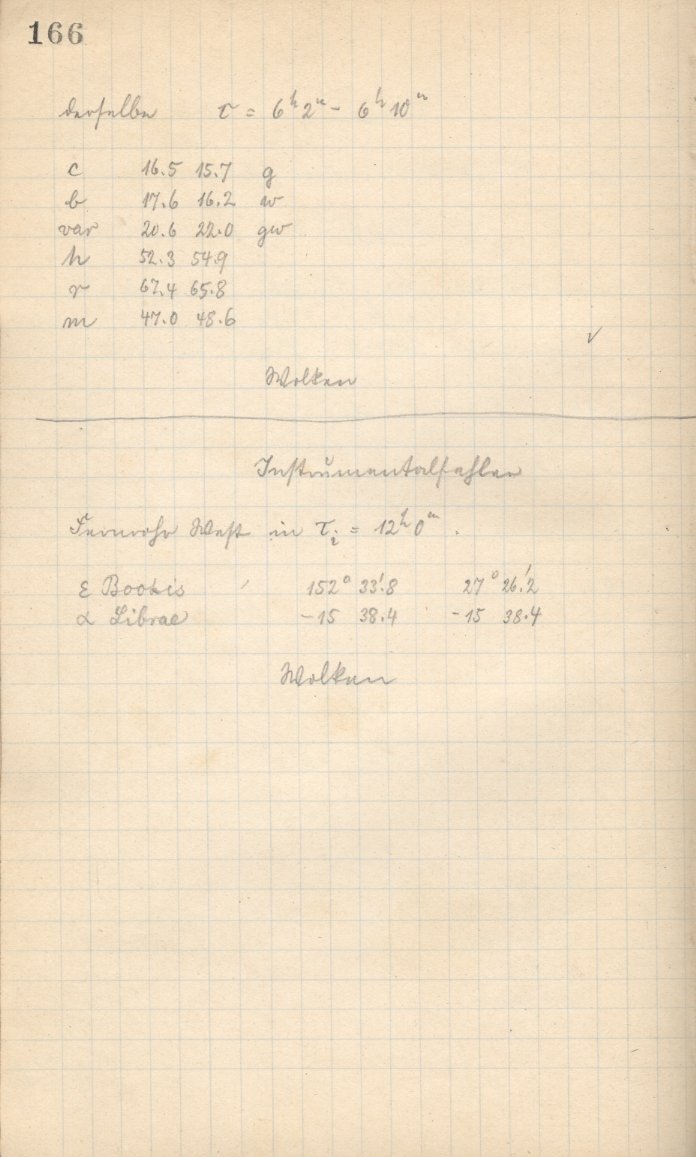 166
derselbe τ = 6ʰ2ᵐ – 6ʰ10ᵐ
c 16.5 15.7 g
b 17.6 16.2 w
var 20.6 22.0 gw
h 52.3 54.9
r 67.4 65.8
m 47.0 48.6
✓
Wolken
Instrumentalfehler
Fernrohr West in τᵢ = 12ʰ0ᵐ.
ε Bootis 152° 33!8 27° 26!2
α Librae –15 38.4 –15 38.4
Wolken